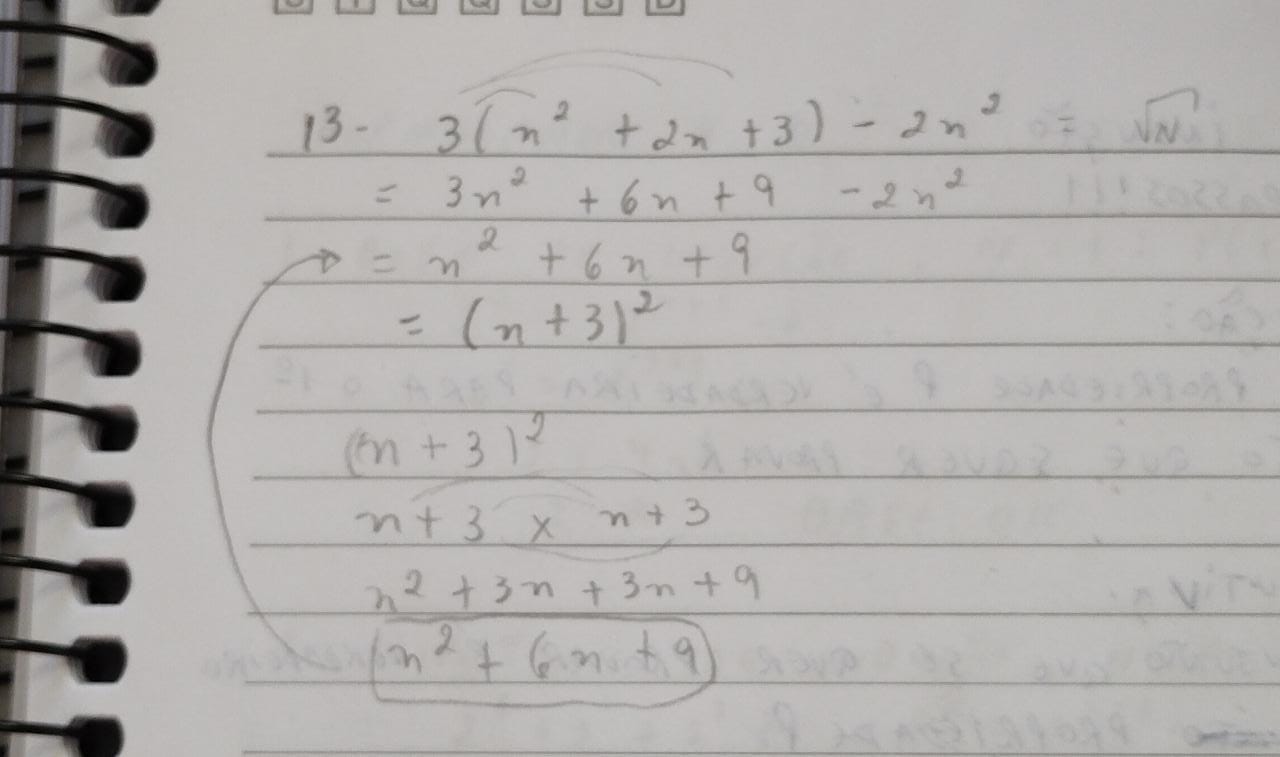 13- 3(n² + 2n + 3) - 2n² = √N
= 3n² + 6n + 9 - 2n²
= n² + 6n + 9
= (n + 3)²
(n + 3)²
n + 3 x n + 3
n² + 3n + 3n + 9
n² + 6n + 9